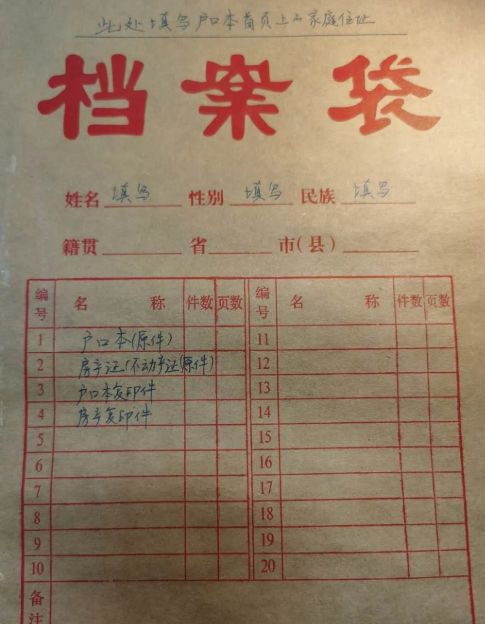 此处填写户口本首页上的家庭住址
档案袋
姓名 填写 性别 填写 民族 填写
籍贯 省 市(县)
编号 名称 件数 页数 编号 名称 件数 页数
1 户口本(原件) 11
2 房产证(不动产证(原件) 12
3 户口本复印件 13
4 房产复印件 14
5 15
6 16
7 17
8 18
9 19
10 20
备注